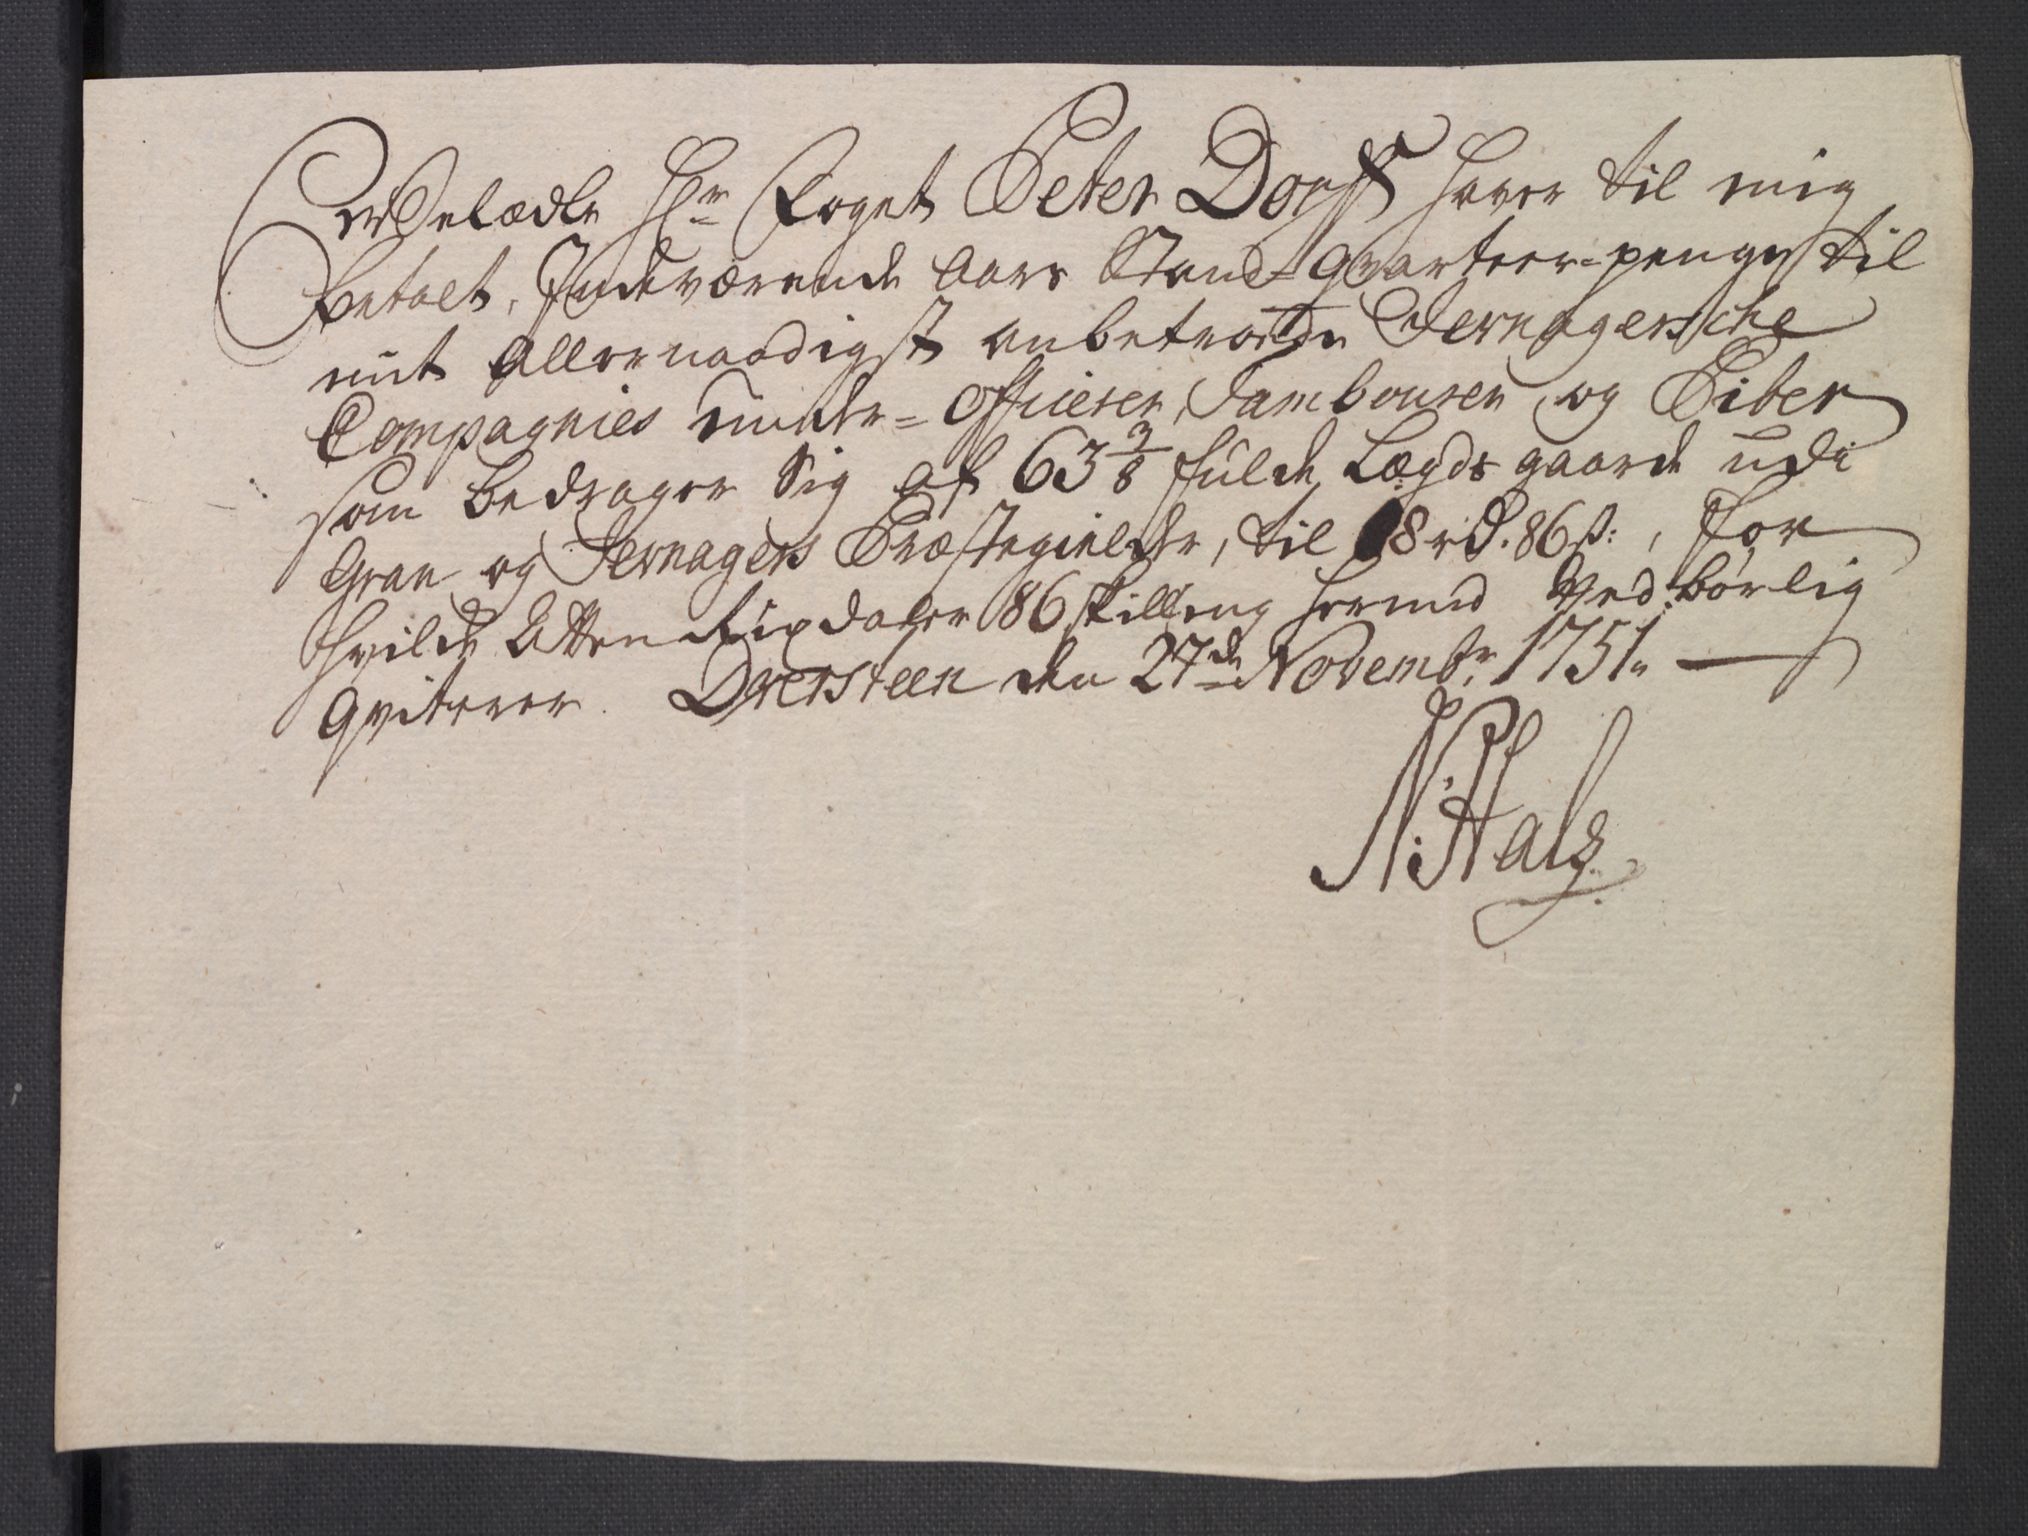 VelÆdle Hr Foget Peter Dorff haver til mig
betalt, Indeværende Aars Stand-Qvarteer-penge til
mit Allernaadigst anbetroede Jernagersche
Compagnies Under=Officerer, Tambourer og Piber
som bedrager sig af 63 3/8 fulde Lægds gaarde udi
Gran og Jernagers Præstegielder, til 18 rd. 86 ß:, for
hvilde Atten Rixdaler 86 skilling hermed Ved børlig
Qviterer. Dversteen den 27de Novembr. 1751.
N: Hals